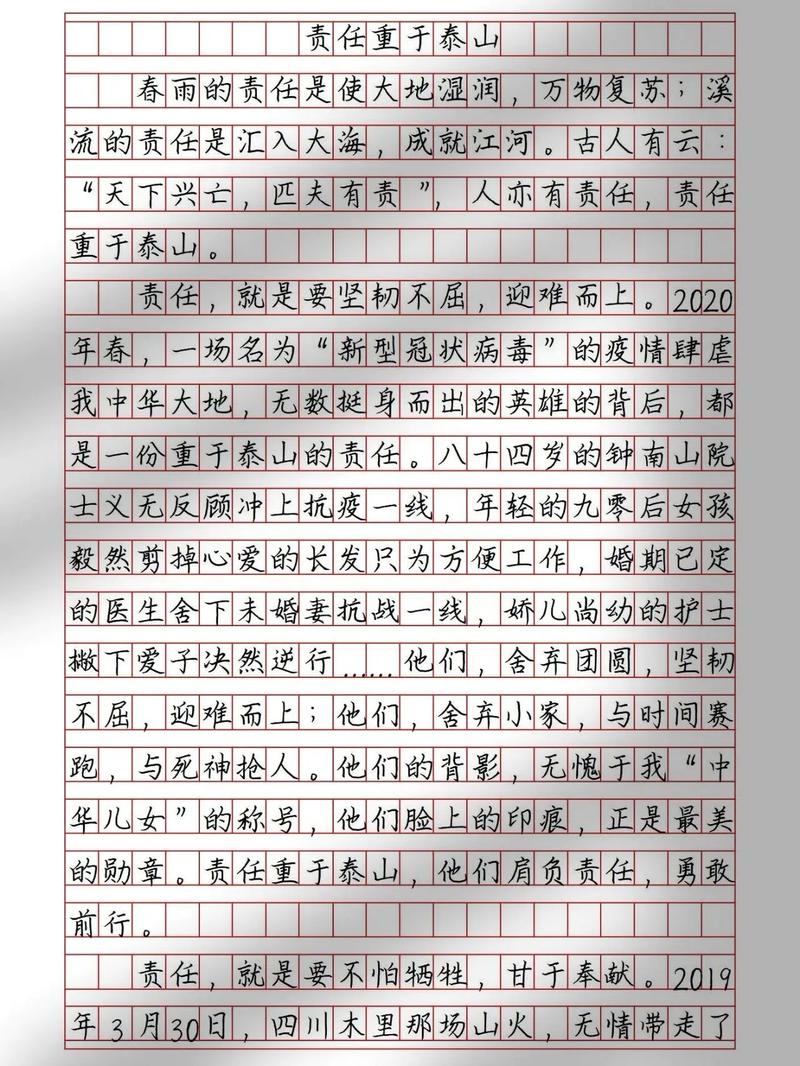 责任重于泰山
春雨的责任是使大地湿润，万物复苏；溪
流的责任是汇入大海，成就江河。古人有云：
“天下兴亡，匹夫有责”，人亦有责任，责任
重于泰山。
责任，就是要坚韧不屈，迎难而上。2020
年春，一场名为“新型冠状病毒”的疫情肆虐
我中华大地，无数挺身而出的英雄的背后，都
是一份重于泰山的责任。八十四岁的钟南山院
士义无反顾冲上抗疫一线，年轻的九零后女孩
毅然剪掉心爱的长发只为方便工作，婚期已定
的医生舍下未婚妻抗战一线，娇儿尚幼的护士
撇下爱子决然逆行……他们，舍弃团圆，坚韧
不屈，迎难而上；他们，舍弃小家，与时间赛
跑，与死神抢人。他们的背影，无愧于我“中
华儿女”的称号，他们脸上的印痕，正是最美
的勋章。责任重于泰山，他们肩负责任，勇敢
前行。
责任，就是要不怕牺牲，甘于奉献。2019
年3月30日，四川木里那场山火，无情带走了